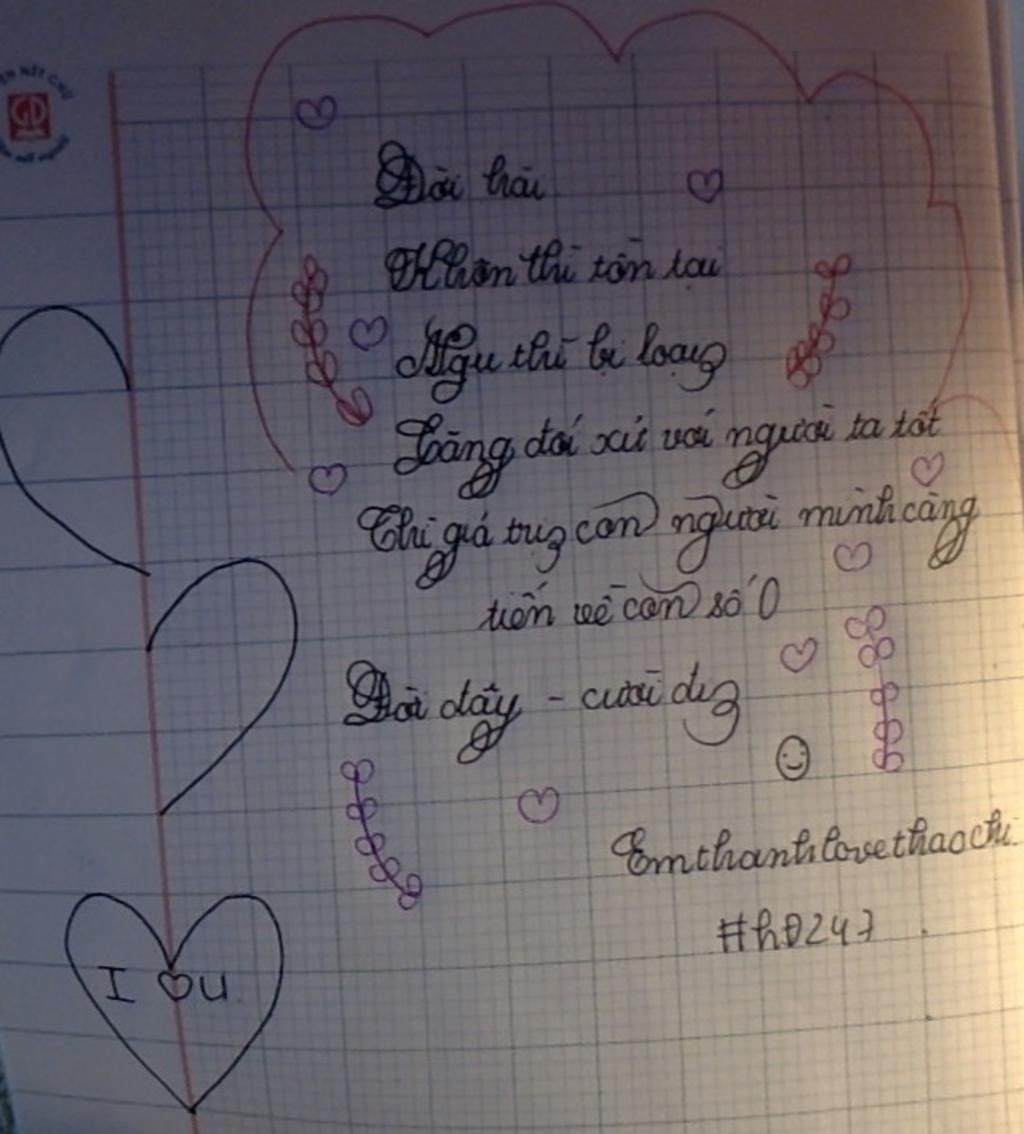 GD
Đời hài
Khôn thì tồn tại
Ngu thì bị loạiz
Càng đối xử với người ta tốt
Thì giá trịz con người mình càng
tiến về con số 0
Đời dấy - cười dịz
Emthanhlovethaochi.
#hĐ247
I u